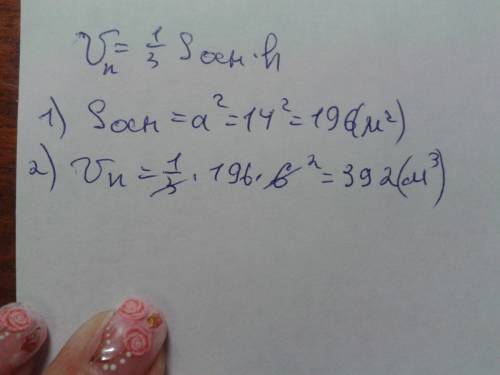 Vп = 1/3 Sосн · h
1) Sосн = a² = 14² = 196 (м²)
2) Vп = 1/3 · 196 · 6 ² = 392 (м³)